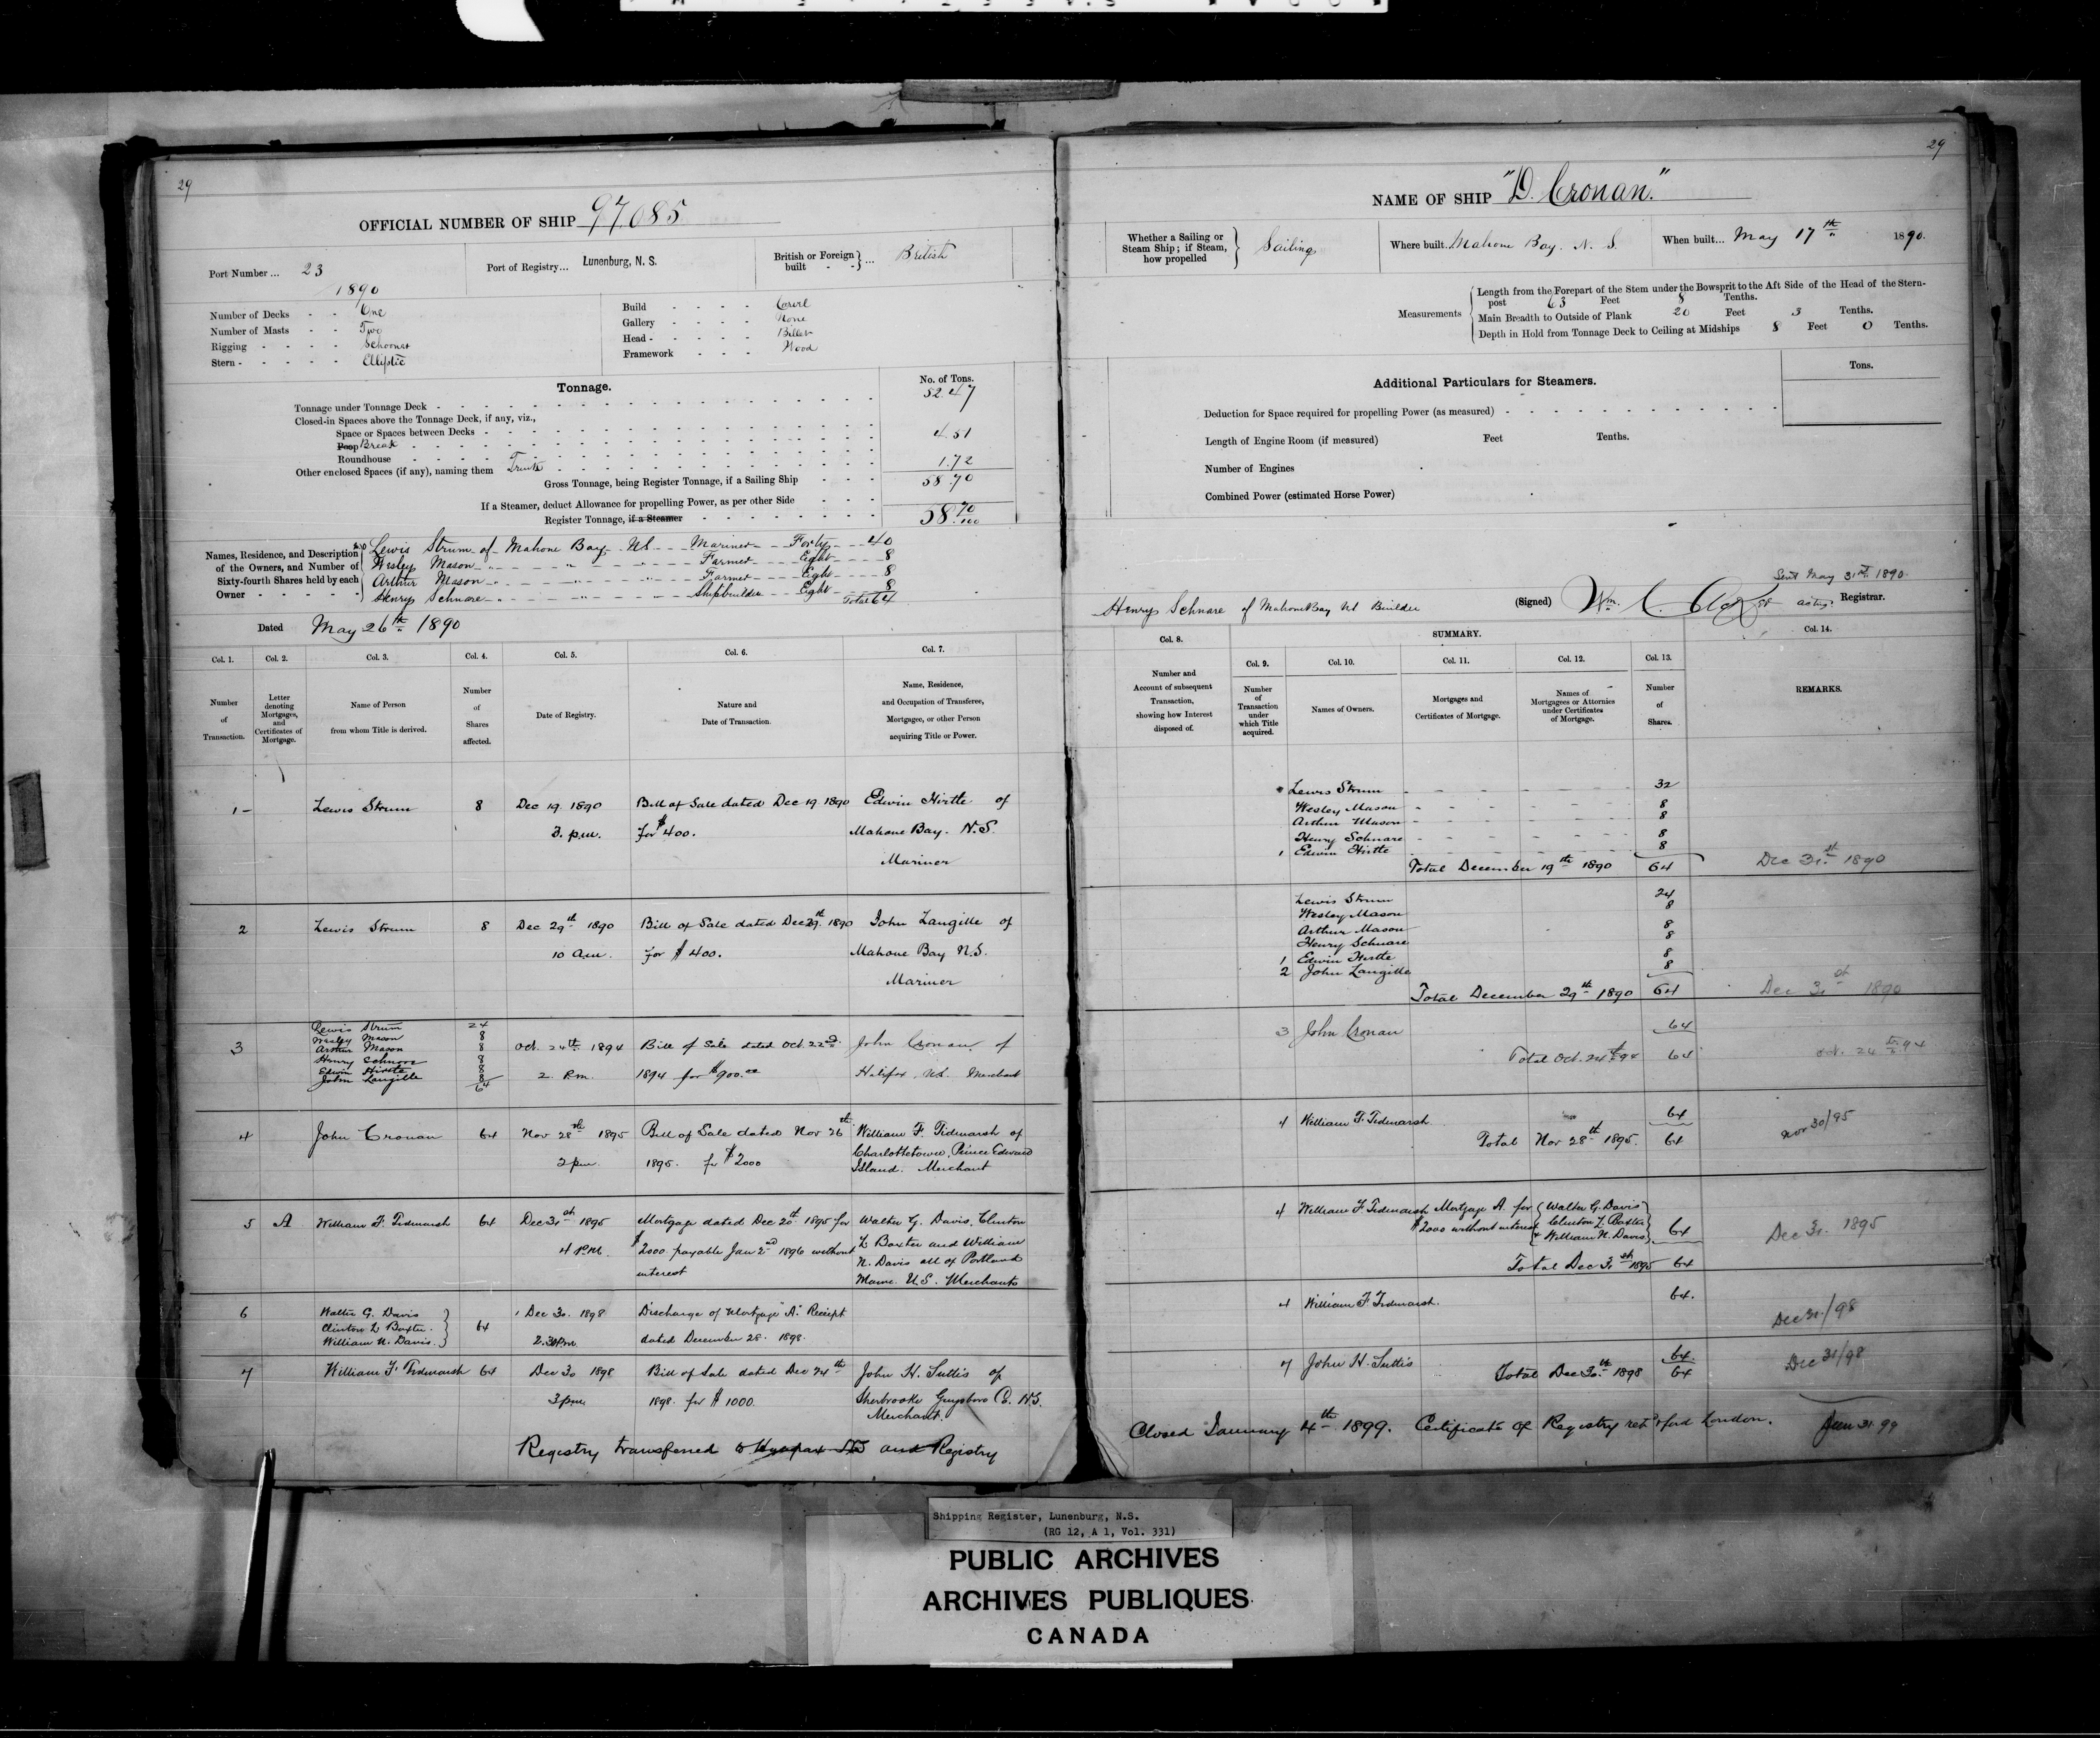 29
OFFICIAL NUMBER OF SHIP 97,085
Port Number ... 23
1890
Port of Registry... Lunenburg, N. S.
British or Foreign built - - } ... British
Number of Decks - - One
Number of Masts - - Two
Rigging - - - - Schooner
Stern - - - - - Elliptic
Build - - - - Carvel
Gallery - - - - None
Head - - - - - Billet
Framework - - - Wood
Tonnage.
No. of Tons.
Tonnage under Tonnage Deck - 52.47
Closed-in Spaces above the Tonnage Deck, if any, viz.,
Space or Spaces between Decks -
Poop Break - 4.51
Roundhouse -
Other enclosed Spaces (if any), naming them Trunk - 1.72
Gross Tonnage, being Register Tonnage, if a Sailing Ship - - - 58.70
If a Steamer, deduct Allowance for propelling Power, as per other Side - - -
Register Tonnage, if a Steamer - 58 70/100
Names, Residence, and Description of the Owners, and Number of Sixty-fourth Shares held by each Owner - - - - -
Lewis Strum of Mahone Bay NS Mariner Forty 40
Wesley Mason " " " Farmer Eight 8
Arthur Mason " " " Farmer Eight 8
Henry Schnare " " " Shipbuilder Eight 8
Total 64
Dated May 26th 1890
Col. 1. Col. 2. Col. 3. Col. 4. Col. 5. Col. 6. Col. 7.
Number of Transaction.
Letter denoting Mortgages, and Certificates of Mortgage.
Name of Person from whom Title is derived.
Number of Shares affected.
Date of Registry.
Nature and Date of Transaction.
Name, Residence, and Occupation of Transferee, Mortgagee, or other Person acquiring Title or Power.
1 - Lewis Strum 8 Dec 19. 1890 Bill of Sale dated Dec 19 1890 Edwin Hirtle of
3. p.m. for $400. Mahone Bay. N.S.
Mariner
2 Lewis Strum 8 Dec 29th 1890 Bill of Sale dated Dec 29th 1890 John Langille of
10 a.m. for $400. Mahone Bay N.S.
Mariner
Lewis Strum 24
Wesley Mason 8
3 Arthur Mason 8 Oct. 24th 1894 Bill of Sale dated Oct. 22nd John Cronan of
Henry Schnare 8
Edwin Hirtle 8 2. P.m. 1894 for $900.00 Halifax, NS. Merchant
John Langille 8
64
4 John Cronan 64 Nov 28th 1895 Bill of Sale dated Nov 26th William F. Tidmarsh of
2 pm. 1895. for $2000 Charlottetown, Prince Edward
Island. Merchant
5 A William F. Tidmarsh 64 Dec 31st 1895 Mortgage dated Dec 20th 1895 for Walter G. Davis, Clinton
4 P.M. $2000 payable Jan 2nd 1896 without L. Baxter and William
interest N. Davis all of Portland
Maine. U.S. Merchants
6 Walter G. Davis Dec 30. 1898 Discharge of Mortgage "A" Receipt
Clinton L Baxter. 64
William N. Davis. 2.30 P.m. dated December 28. 1898.
7 William F. Tidmarsh 64 Dec 30 1898 Bill of Sale dated Dec 24th John H. Suttis of
3 pm 1898. for $1000. Sherbrooke Guysboro Co. N.S.
Merchant.
Registry transferred to and Registry
29
NAME OF SHIP "D. Cronan."
Whether a Sailing or Steam Ship; if Steam, how propelled } Sailing
Where built. Mahone Bay. N. S.
When built... May 17th 1890.
Measurements
Length from the Forepart of the Stem under the Bowsprit to the Aft Side of the Head of the Stern-
post 63 Feet 8 Tenths.
Main Breadth to Outside of Plank 20 Feet 3 Tenths.
Depth in Hold from Tonnage Deck to Ceiling at Midships 8 Feet 0 Tenths.
Additional Particulars for Steamers.
Tons.
Deduction for Space required for propelling Power (as measured) -
Length of Engine Room (if measured) Feet Tenths.
Number of Engines
Combined Power (estimated Horse Power)
Sent May 31st 1890.
Henry Schnare of Mahone Bay NS Builder
(Signed) Wm. acting Registrar.
Col. 8. SUMMARY. Col. 14.
Col. 9. Col. 10. Col. 11. Col. 12. Col. 13.
Number and Account of subsequent Transaction, showing how Interest disposed of.
Number of Transaction under which Title acquired.
Names of Owners.
Mortgages and Certificates of Mortgage.
Names of Mortgagees or Attornies under Certificates of Mortgage.
Number of Shares.
REMARKS.
Lewis Strum 32
Wesley Mason 8
Arthur Mason 8
Henry Schnare 8
1 Edwin Hirtle 8
Total December 19th 1890 64 Dec 31st 1890
Lewis Strum 24
Wesley Mason 8
Arthur Mason 8
Henry Schnare 8
1 Edwin Hirtle 8
2 John Langille 8
Total December 29th 1890 64 Dec 31st 1890
3 John Cronan 64
Total Oct. 24th 94 64 Oct. 24th 94
4 William F. Tidmarsh 64
Total Nov 28th 1895. 64 Nov 30/95
4 William F. Tidmarsh Mortgage A. for { Walter G. Davis }
$2000 without interest { Clinton L. Baxter } 64
{ & William N. Davis }
Total Dec 31st 1895 64 Dec 31. 1895
4 William F. Tidmarsh. 64. Dec 31/98
7 John H. Suttis 64
Total Dec 30th 1898 64 Dec 31/98
Closed January 4th 1899. Certificate of Registry retd & ford London. Jan 31. 99
Shipping Register, Lunenburg, N.S.
(RG 12, A 1, Vol. 331)
PUBLIC ARCHIVES
ARCHIVES PUBLIQUES
CANADA